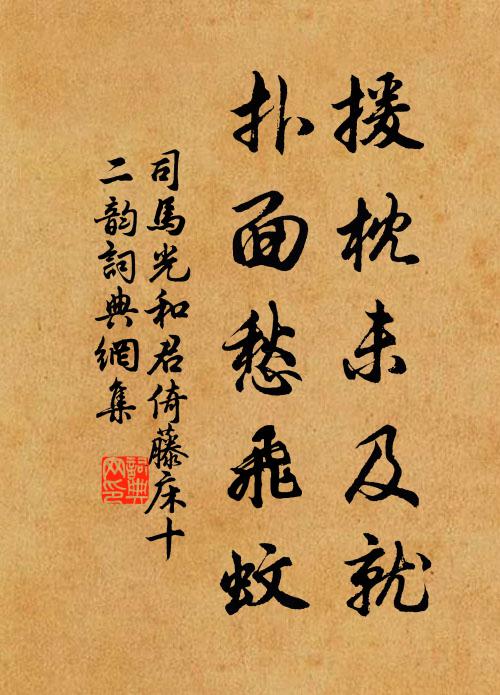 援枕未及就
扑面愁飛蚊
司馬光和君倚藤床十
二韵詞典網集
詞典
网印